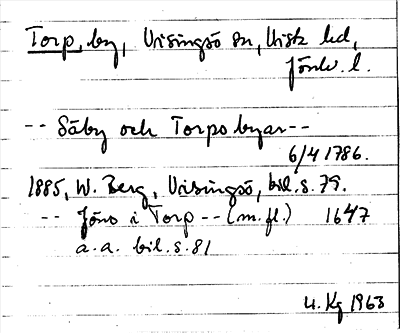 Torp, by, Visingsö sn, Vista hd,
Jönk. l.
-- Säby och Torpo byar --
6/4 1786.
1885, W. Berg, Visingsö, bil. s. 79.
-- Jöns i Torp -- (m.fl.) 1647
a.a. bil. s. 81
U. Kg 1963